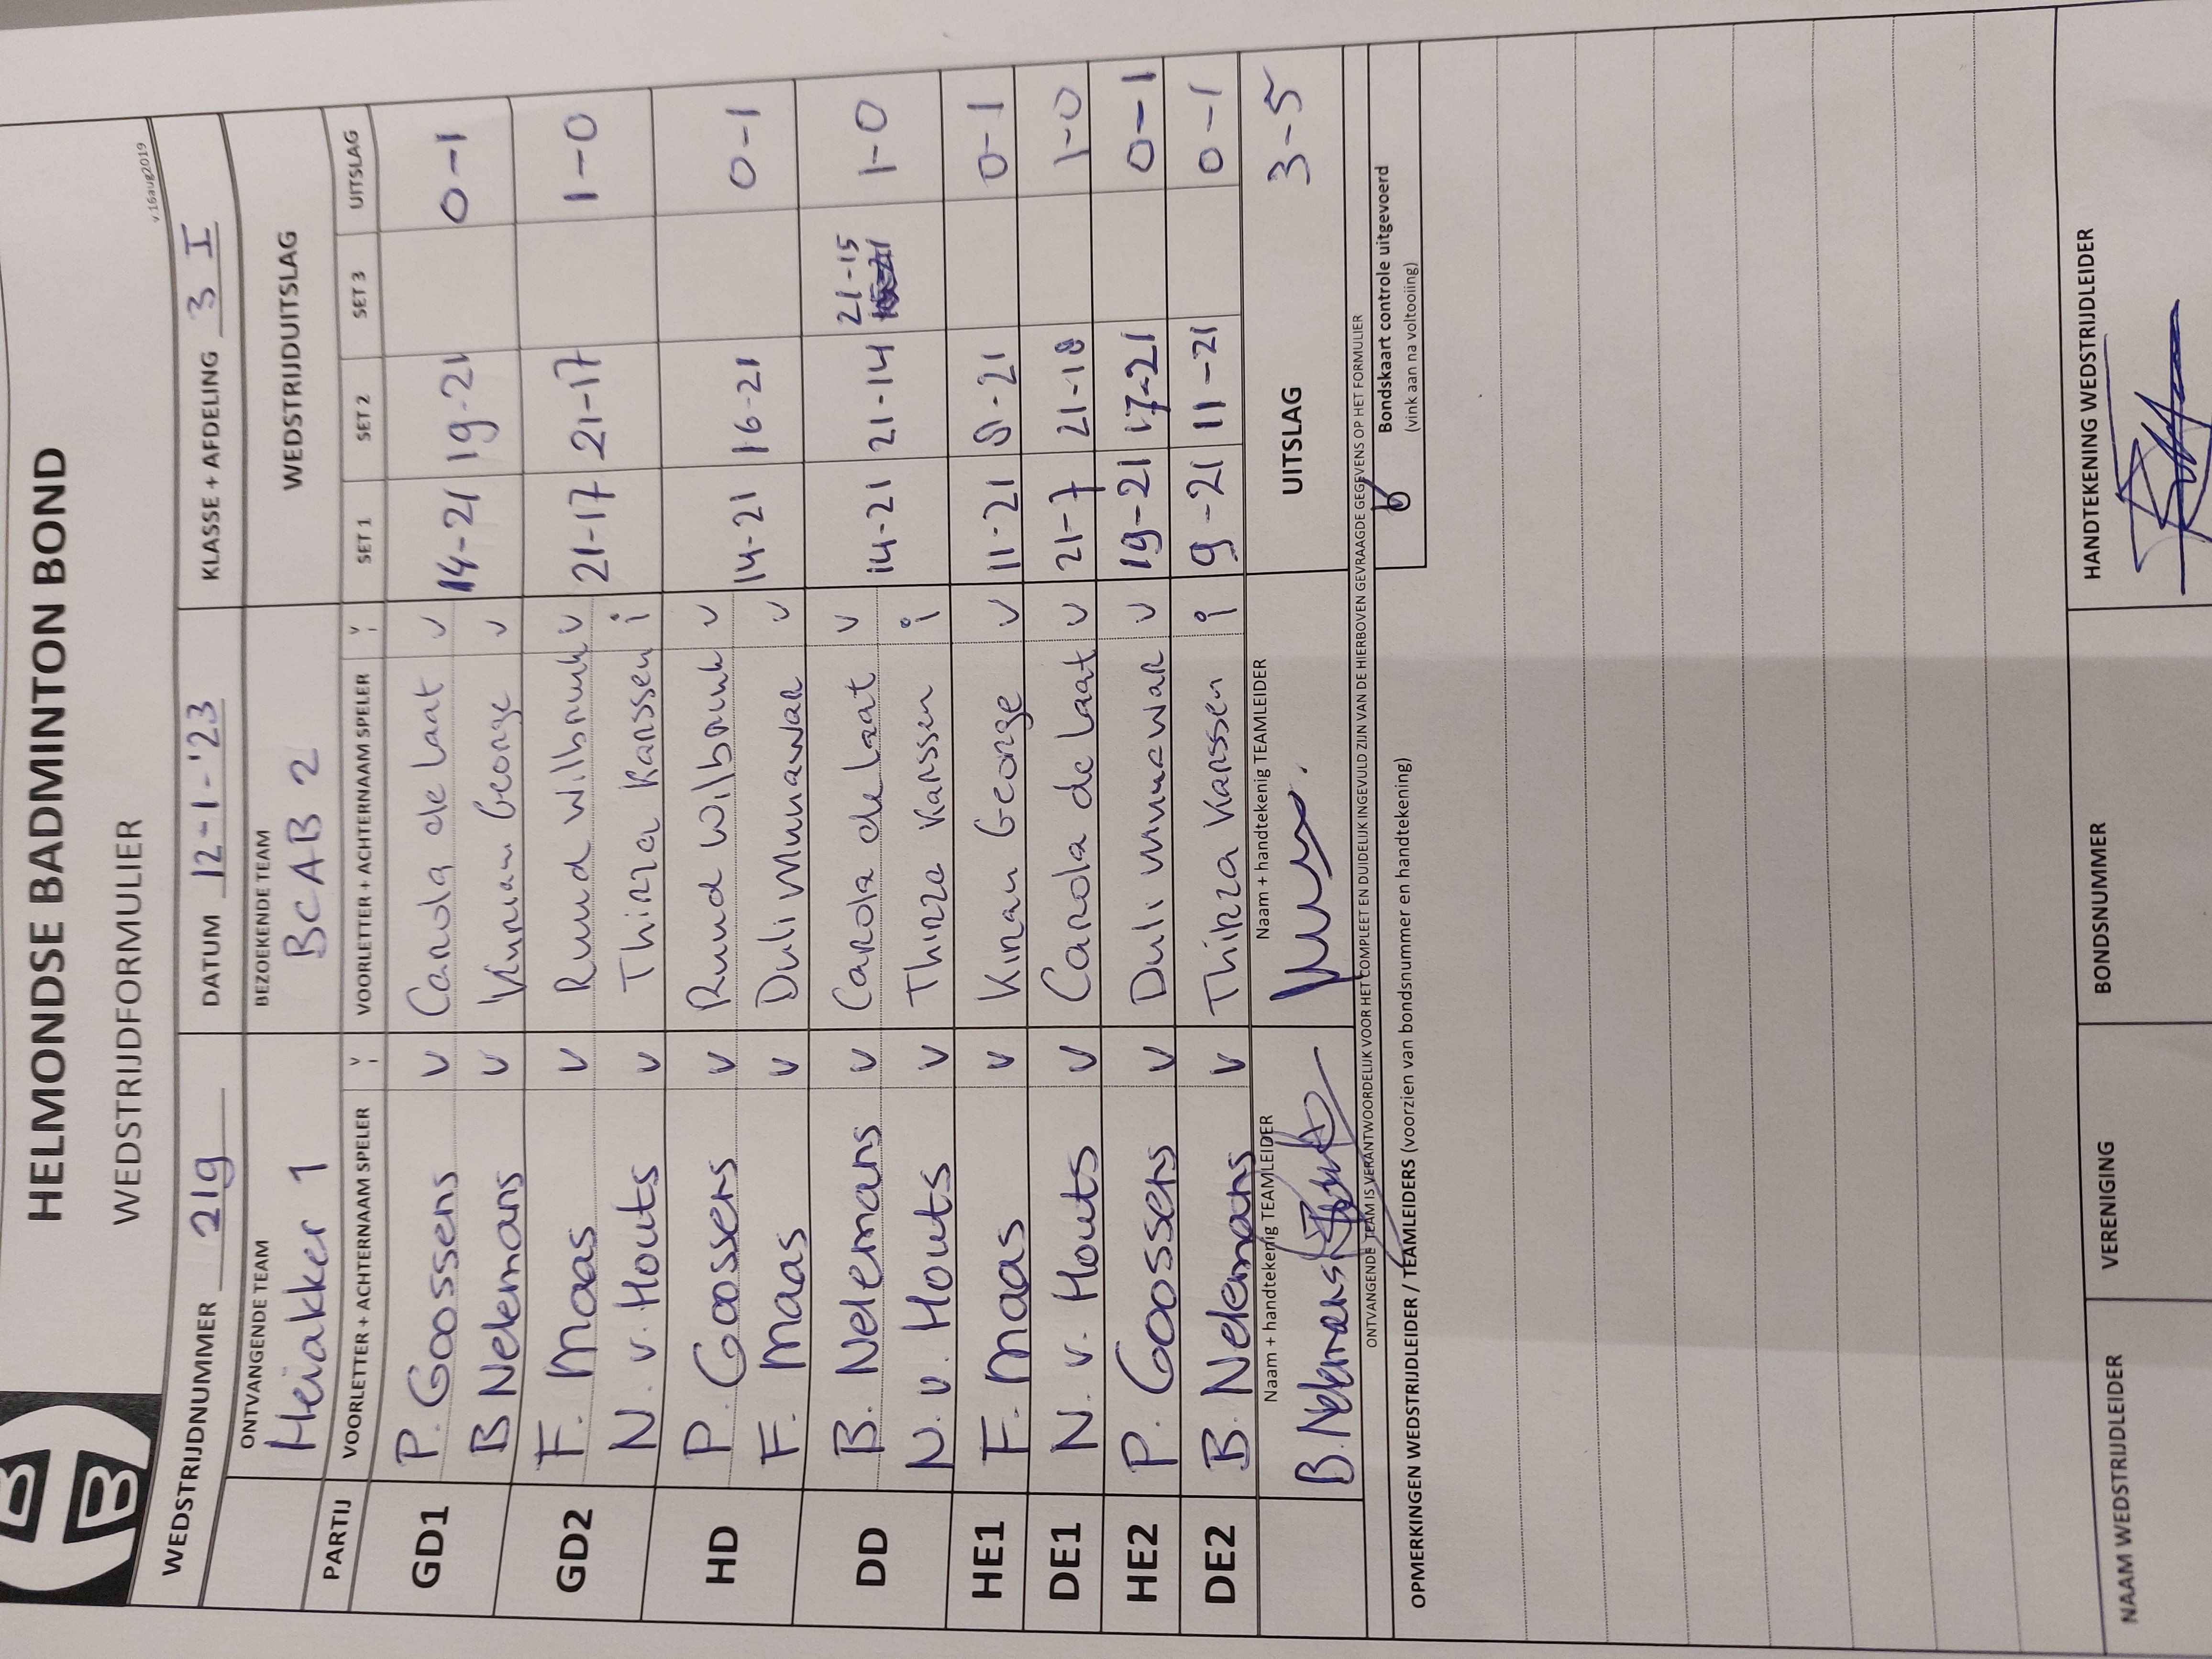 HELMONDSE BADMINTON BOND
WEDSTRIJDFORMULIER
v16aug2019
WEDSTRIJDNUMMER 219 DATUM 12-1-'23 KLASSE + AFDELING 3 I
ONTVANGENDE TEAM BEZOEKENDE TEAM WEDSTRIJDUITSLAG
Heiakker 1 BCAB 2
PARTIJ VOORLETTER + ACHTERNAAM SPELER V i VOORLETTER + ACHTERNAAM SPELER V i SET 1 SET 2 SET 3 UITSLAG
GD1 P. Goossens v Carola de Laat v 14-21 19-21 0-1
B Nelemans v Kinan George v
GD2 F. Maas v Ruud Wilbrink v 21-17 21-17 1-0
N v. Houts v Thirza Karssen i
HD P. Goossens v Ruud Wilbrink v 14-21 16-21 0-1
F. Maas v Duli Munawar v
DD B. Nelemans v Carola de Laat v 14-21 21-14 21-15 1-0
N. v. Houts v Thirza Karssen i
HE1 F. Maas v Kinan George v 11-21 8-21 0-1
DE1 N. v. Houts v Carola de Laat v 21-7 21-18 1-0
HE2 P. Goossens v Duli Munawar v 19-21 17-21 0-1
DE2 B. Nelemans v Thirza Karssen i 9-21 11-21 0-1
Naam + handtekenig TEAMLEIDER Naam + handtekenig TEAMLEIDER UITSLAG 3-5
B. Nelemans
ONTVANGENDE TEAM IS VERANTWOORDELIJK VOOR HET COMPLEET EN DUIDELIJK INGEVULD ZIJN VAN DE HIERBOVEN GEVRAAGDE GEGEVENS OP HET FORMULIER
Bondskaart controle uitgevoerd
(vink aan na voltooiing)
OPMERKINGEN WEDSTRIJDLEIDER / TEAMLEIDERS (voorzien van bondsnummer en handtekening)
NAAM WEDSTRIJDLEIDER VERENIGING BONDSNUMMER HANDTEKENING WEDSTRIJDLEIDER